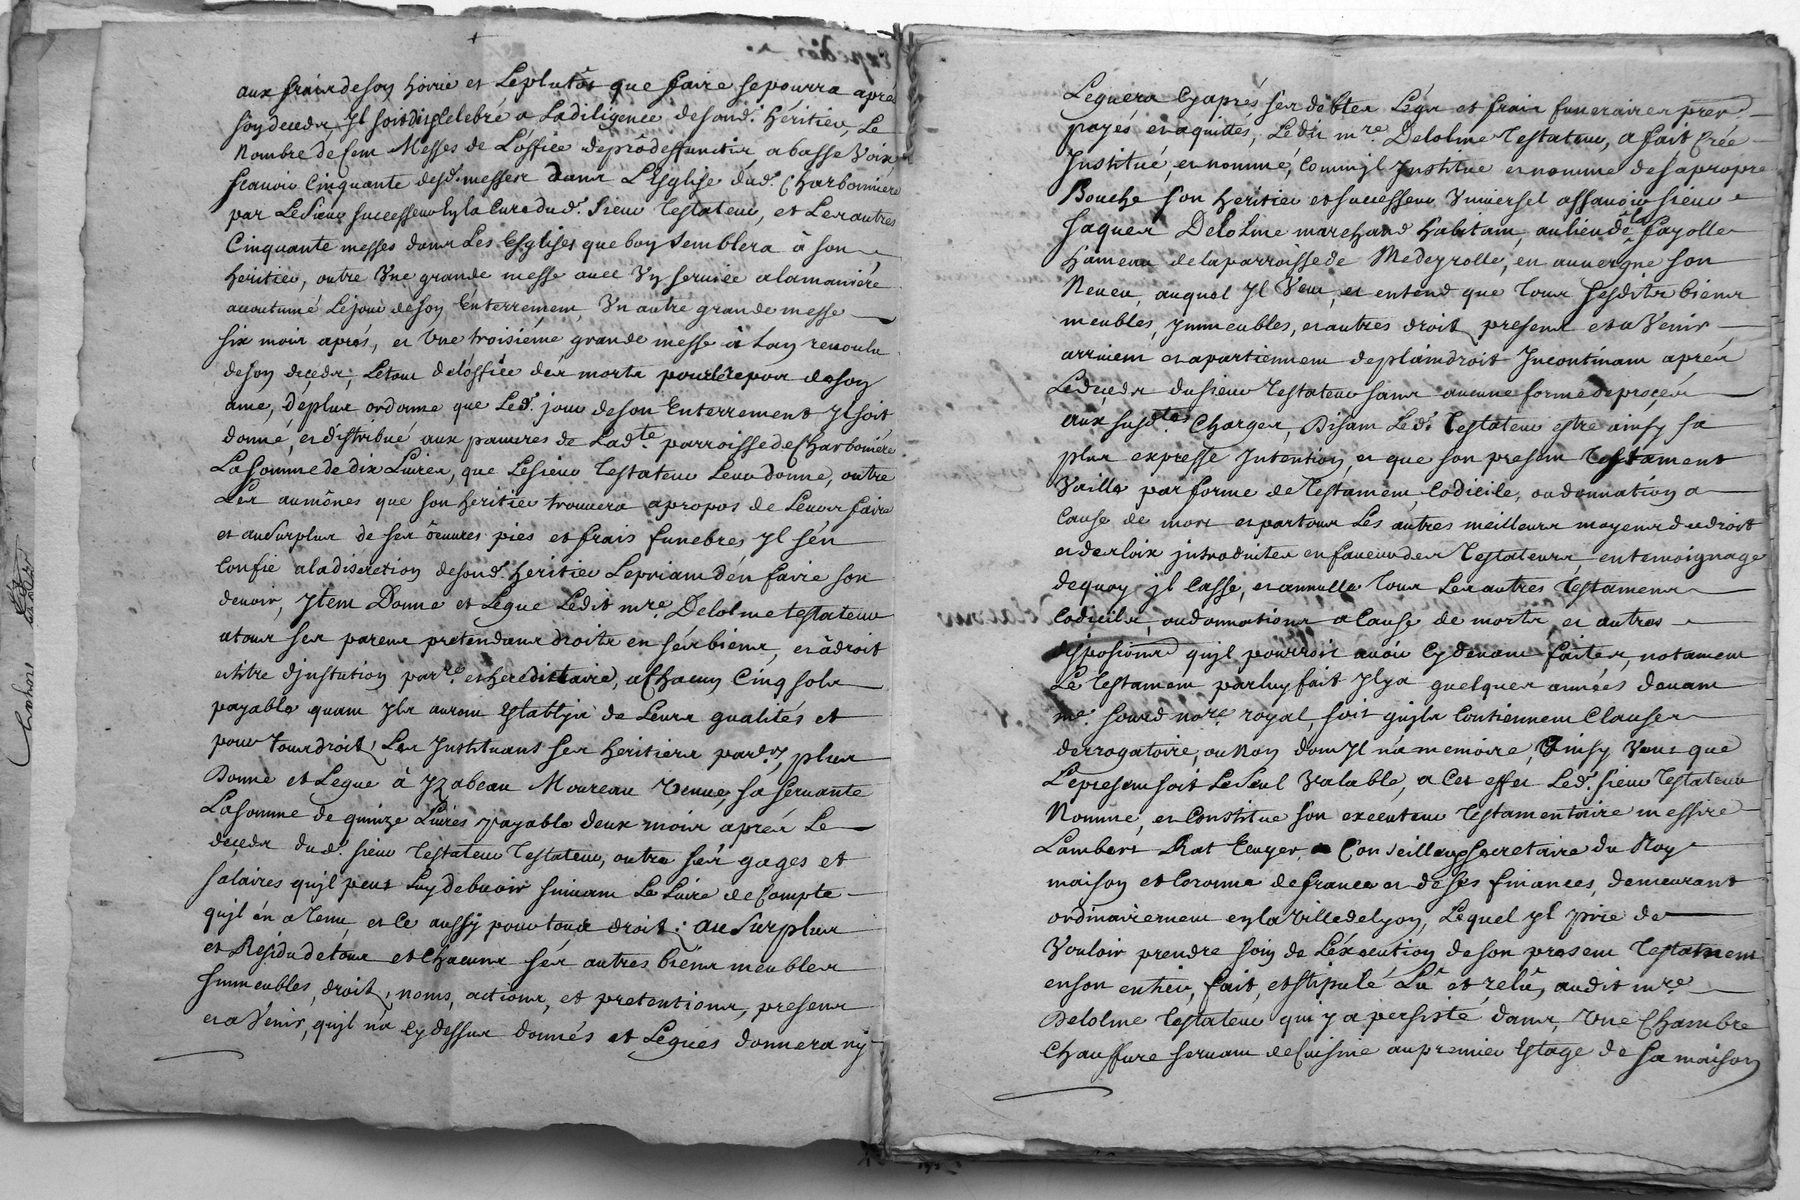 aux frais de son hoirie et le plutôt que faire se pourra après
son deceds, Il soit dit Celebré a La diligence de sond. héritier, Le
Nombre de Cent Messes de L'office de prô deffunctis a basse Voix
scauoir Cinquante desd. messes dans L'Esglise dud. Charbonniere
par Le sieur successeur En la Cure dud. sieur Testateur, et Les autres
Cinquante messes dans Les Esglises que bon semblera à son
heritier, outre Vne grande messe auec Vn seruice a la maniére
acoutumé Le jour de son Enterrement, Vn autre grande messe
six mois aprés, et Vne troisiéme grande messe à L'an reuoulu
de son deceds, Le tout de l'office des morts pour Le repos de son
ame, de plus ordonne que Led. jour de son Enterrement Il soit
donné, et distribué aux pauures de Ladte parroisse de Charboniére
La somme de dix Liures, que Le sieur Testateur Leur donne, outre
Les aumônes que son heritier trouuera apropos de Leurs faire
et au surplus de ses ôeuures pies et frais funebres Il s'en
Confie a la discretion de sond. heritier Le priant d'en faire son
deuoir, Item Donne et Legue Ledit mre. Delolme testateur
a tous ses parens pretendans droits en ses biens, et à droit
et titre d'institution parre. et hereditaire, a Chacun Cinq sols
payable quant Ils auront Establjs de Leurs qualités et
pour tous droit, Les Instituans ses heritiers par.ers, plus
Donne et Legue à Yzabeau Moureau Veuue, sa seruante
La somme de quinze Liures payable deux mois aprés Le
deceds dud. sieur Testateur Testateur, outre ses gages et
salaires qu'il peut Luy debuoir suiuant Le Liure de Compte
qu'il en a tenu, et Ce aussy pour tous droit; au surplus
et Residu de tous et Chacuns ses autres biens meubles
Immeubles, droit, noms, actions, et pretentions, presens
et a Venir, qu'il n'a Cy dessus donnés et Legués donnera ny
Leguera Cy aprés ses debtes Légs et frais funeraires prea-
payés et aquittés, Ledit mre. Delolme Testateur, a fait Crée
Institué, et nommé, Comm'jl Institue et nomme de sa propre
Bouche son heritier et successeur Vniversel assauoir sieur
Jaques Delolme marchand habitant, au lieu de la fayolle
hameau de la parroisse de Medeyrolle, en auuergne son
Neueu, auquel Il Veut, et entend que tous sesdits biens
meubles, Immeubles, et autres droit, presens et a Venir
arriuent et apartiennent de plain droit Incontinant aprés
Le deceds du sieur Testateur sans aucune forme de procés
aux susd.tes Charges, Disant Led. Testateur estre ainsy sa
plus expresse Intention, et que son present Testament
Vaille par forme de Testament, Codicile, ou donnation a
Cause de mort et par tous Les autres meilleurs moyens de droit
et de loix introduites en faueur des Testateurs, en temoignage
de quoy jl Casse, et annulle tous Les autres Testamens
Codicils, ou donnations a Cause de morts et autres
dispositions qu'jl pourroit auoir Cy deuant faites, notament
Le Testament par luy fait Il y a quelques années deuant
me. sourd nore. royal, soit qu'jls Contiennent Clauses
derrogatoire, ou Non dont Il n'a memoire, Ainsy Veut que
Le present soit Le Seul Valable, a Cet effet Led. sieur Testateur
Nomme, et Constitue son executeur Testamentaire messire
Lambert Rat Ecuyer, Conseiller secretaire du Roy
maison et Coronne de france et de ses finances, demeurant
ordinairement en la Ville de Lyon, Lequel Il prie de
Vouloir prendre soin de L'éxecution de son present Testament
en son entier, fait, et stipulé Lû et relû, audit mre.
Delolme Testateur qui y a persisté dans, Vne Chambre
Chauffure seruant de Cuisine au premier Estage de sa maison